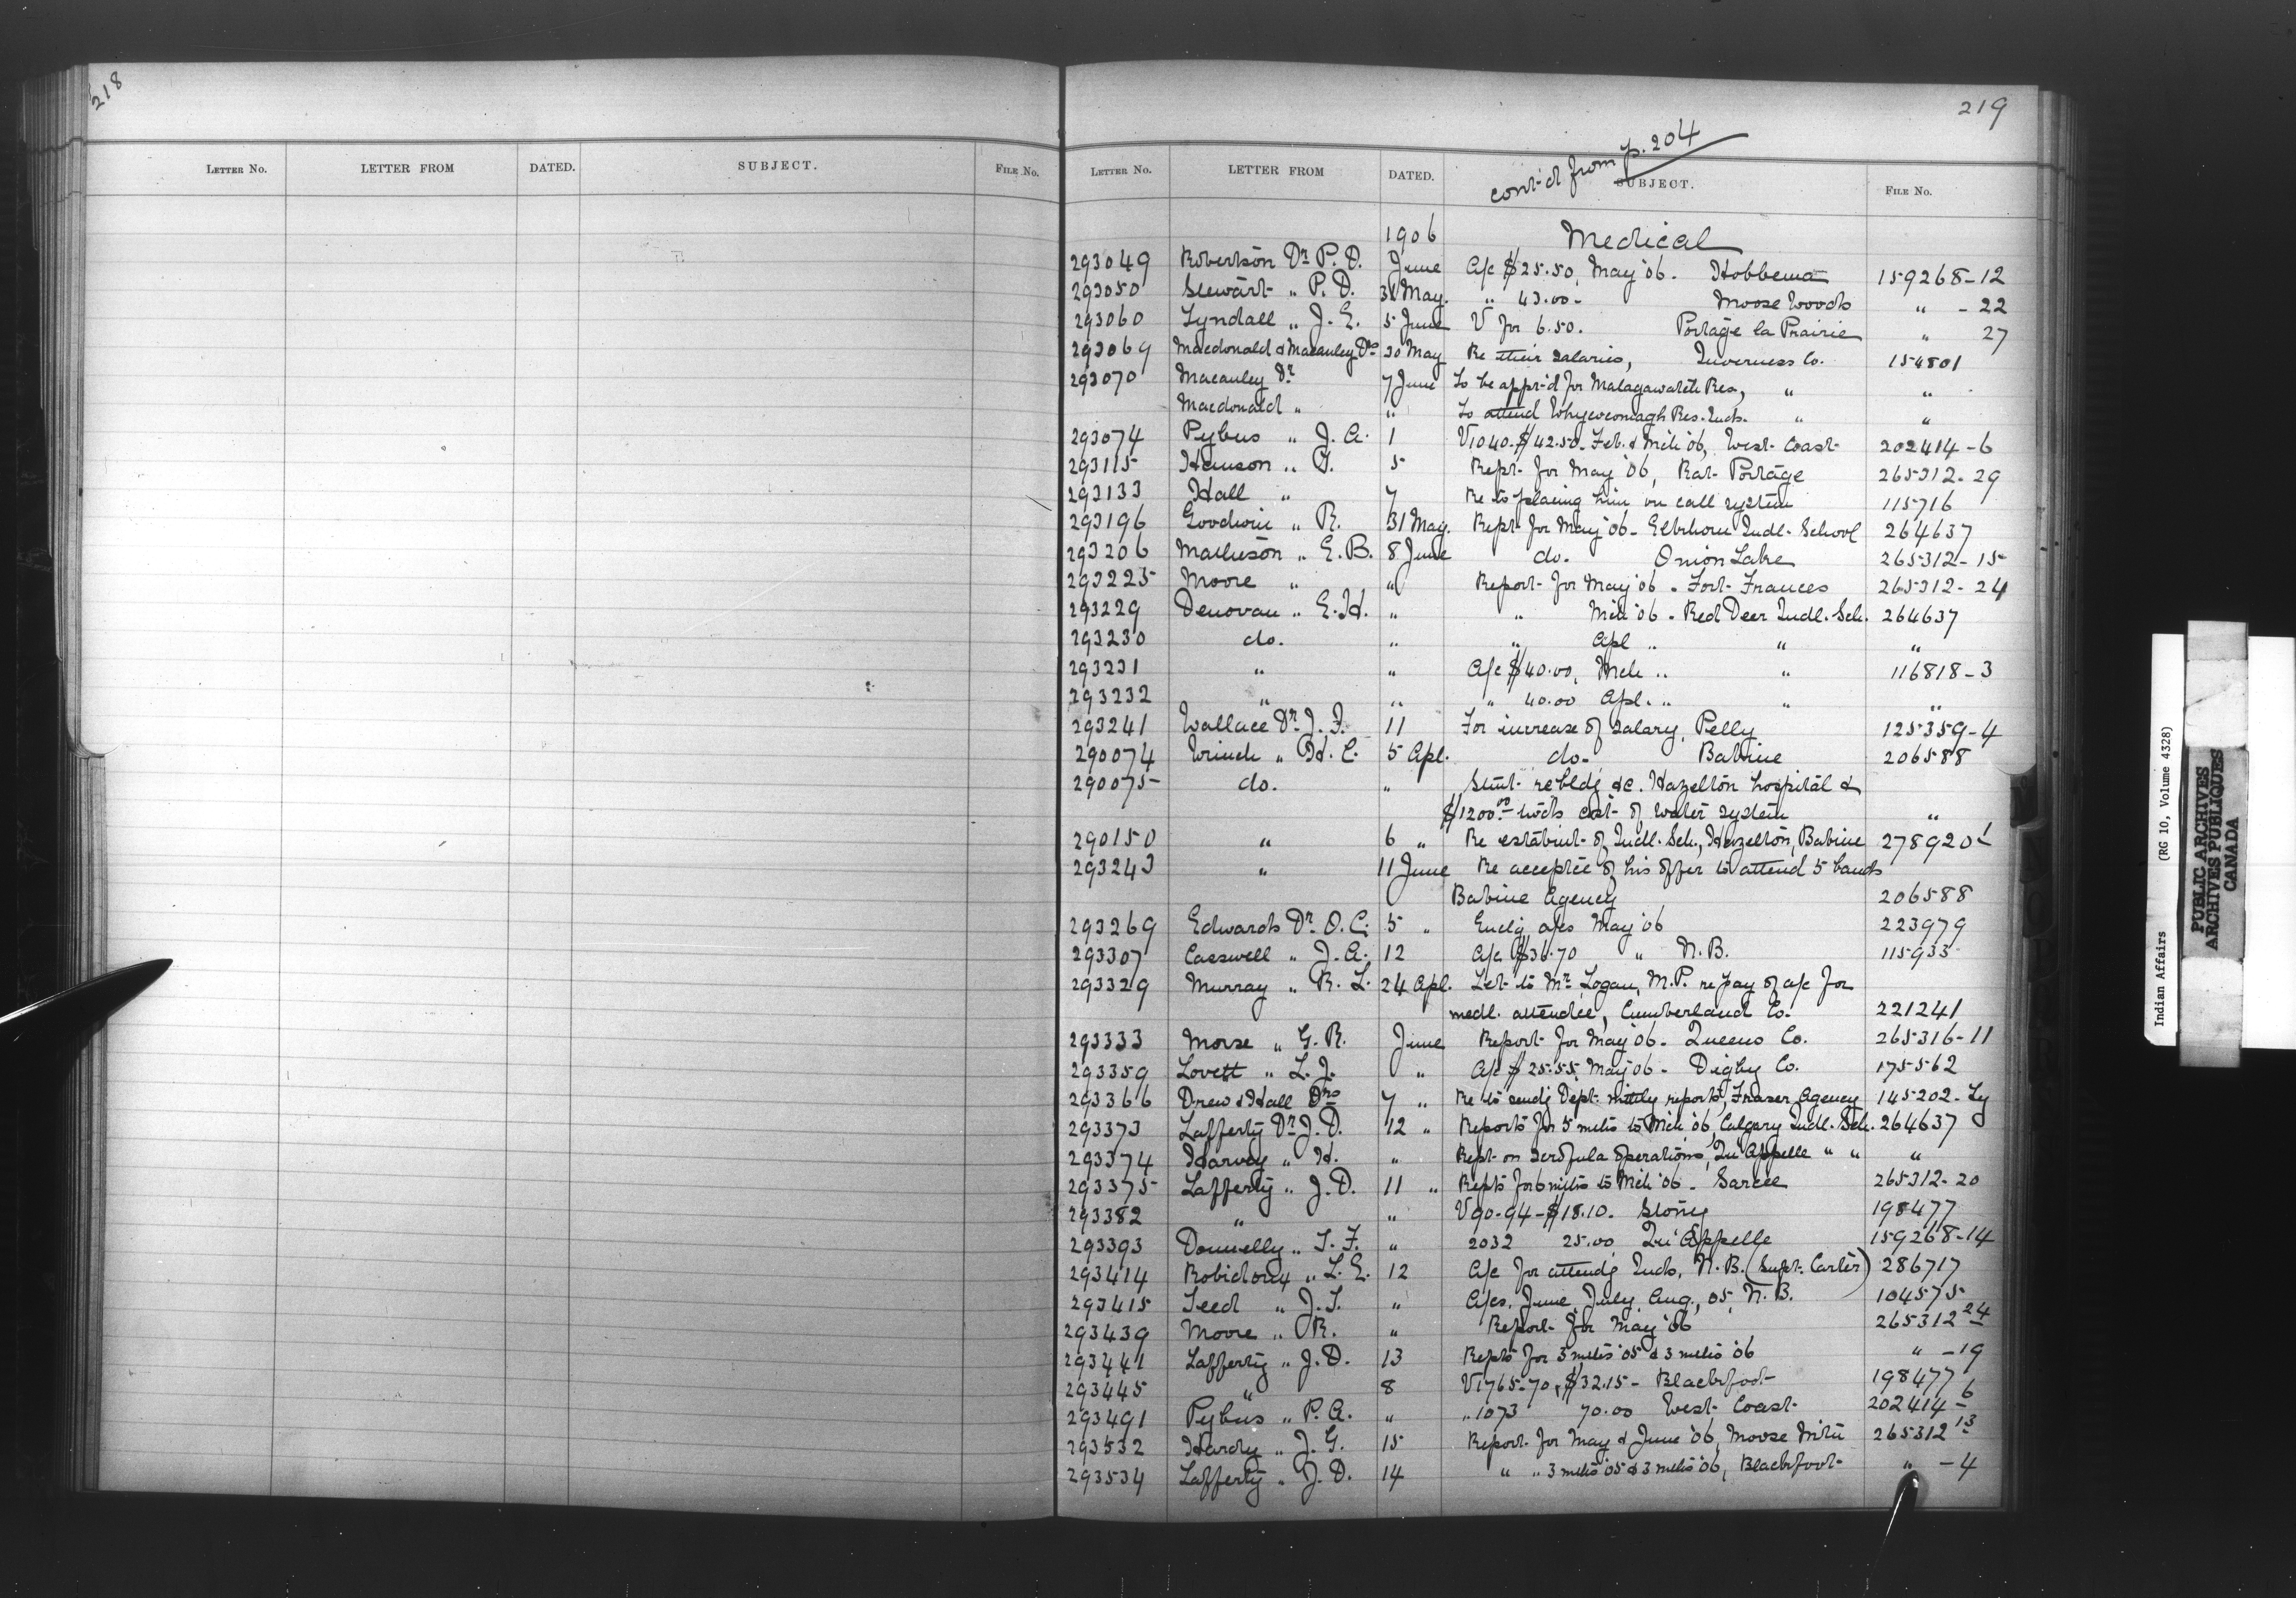 218
LETTER NO. LETTER FROM DATED. SUBJECT. FILE NO.
219
cont'd from p. 204
LETTER NO. LETTER FROM DATED. SUBJECT. FILE NO.
1906 Medical
293049 Robertson Dr. P. D. June A/c $25.50, May '06. Hobbema 159268-12
293050 Stewart " P. D. 31 May. " 43.00- Moose Woods " - 22
293060 Lyndall " J. E. 5 June V for 6.50. Portage la Prairie " 27
293069 Macdonald & Macauley Drs 30 May Re their salaries, Inverness Co. 154801
293070 Macauley Dr. 7 June To be app'd for Malagawatch Res, " "
Macdonald " " To attend Whycocomagh Res. Inds. " "
293074 Pybus " J. A. 1 V1040-$42.50- Feb. & Mch '06, West Coast 202414-6
293115 Hanson " T. 5 Rept. for May '06, Rat Portage 265312-29
293133 Hall " 7 Re to placing him on call system 115716
293196 Goodwin " R. 31 May. Rept. for May '06- Elkhorn Indl. School 264637
293206 Matheson " E. B. 8 June do. Onion Lake 265312-15
293225 Moore " " Report for May '06. Fort Frances 265312-24
293229 Denovan " E. H. " " Mch '06. Red Deer Indl. Sch. 264637
293230 do. " " Apl " " "
293231 " " A/c $40.00, Mch " " 116818-3
293232 " " " 40.00 Apl. " " "
293241 Wallace Dr. J. F. 11 For increase of salary, Pelly 125359-4
290074 Wrinch " H. C. 5 Apl. do- Babine 206588
290075 do. " Stmt. re bldg &c. Hazelton hospital &
$1200.00 twds cost of water system "
290150 " 6 " Re establmt. of Indl. Sch., Hazelton, Babine 278920
293243 " 11 June Re acceptce of his offer to attend 5 bands
Babine Agency 206588
293269 Edwards Dr. O. C. 5 " Enclg a/cs May '06 223979
293307 Casswell " J. A. 12 A/c $36.70 " N.B. 115933
293329 Murray " R. L. 24 Apl. Let. to Mr. Logan, M.P. re pay of a/c for
medl. attendce, Cumberland Co. 221241
293333 Morse " G. R. June Report for May '06- Queens Co. 265316-11
293359 Lovett " L. J. " A/c $25.55, May '06- Digby Co. 175562
293366 Drew & Hall Drs 7 " Re to sendg Dept. mthly reports, Fraser Agency 145202-Ly
293373 Lafferty Dr. J. D. 12 " Reports for 5 mths to Mch '06, Calgary Indl. Sch. 264637
293374 Harvey " H. " Rept. on scrofula operations, Qu'Appelle " " "
293375 Lafferty " J. D. 11 " Repts for 6 mths to Mch '06- Sarcee 265312-20
293382 " " V90-94-$18.10. Stony 198477
293393 Donnelly " T. F. " 2032 25.00 Qu'Appelle 159268-14
293414 Robidoux " L. E. 12 A/c for attendg Inds, N.B. (Supt. Carter) 286717
293415 Leed " J. T. " A/cs. June, July, Aug., 05, N.B. 104575
293439 Moore " R. " Report for May '06 265312-24
293441 Lafferty " J. D. 13 Repts for 3 mths '05 & 3 mths '06 " -19
293445 " 8 V1765-70, $32.15- Blackfoot 198477
293491 Pybus " P. A. " " 1073 70.00 West Coast 202414-6
293532 Hardy " J. G. 15 Report for May & June '06, Moose Mtn 265312-13
293534 Lafferty " J. D. 14 " " 3 mths '05 & 3 mths '06, Blackfoot " -4
Indian Affairs (RG 10, Volume 4328)
PUBLIC ARCHIVES
ARCHIVES PUBLIQUES
CANADA